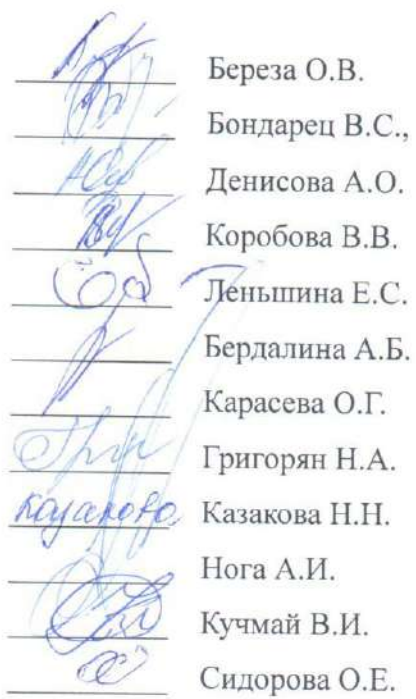 Береза О.В.
Бондарец В.С.,
Денисова А.О.
Коробова В.В.
Леньшина Е.С.
Бердалина А.Б.
Карасева О.Г.
Григорян Н.А.
Казакова Казакова Н.Н.
Нога А.И.
Кучмай В.И.
Сидорова О.Е.